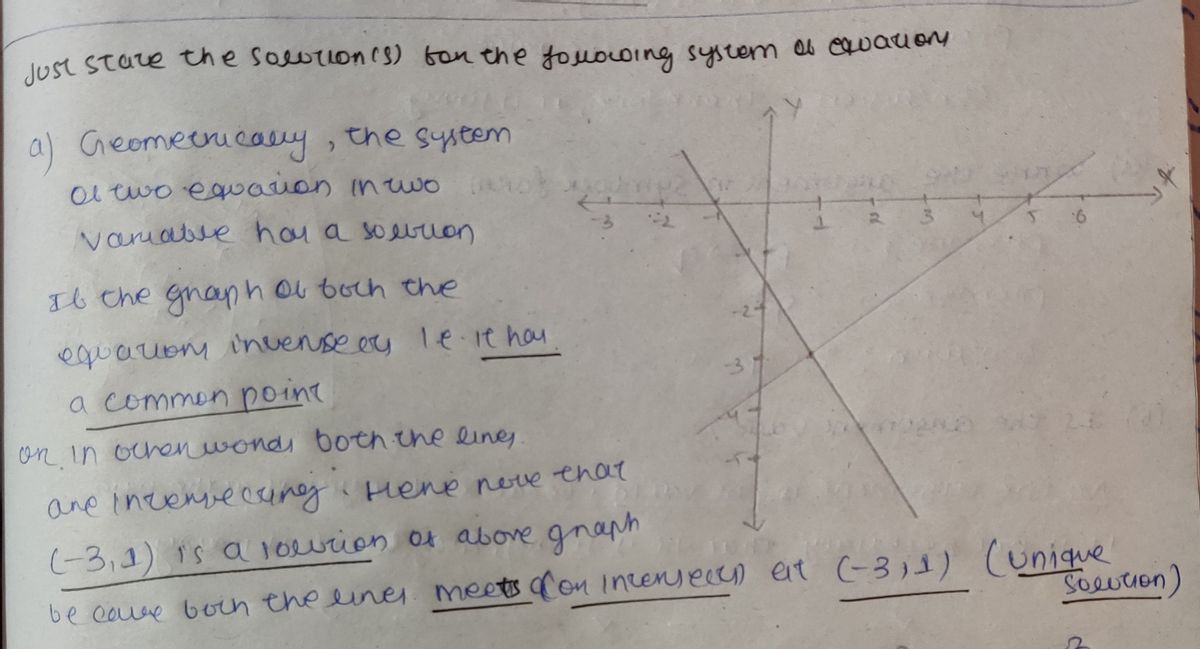 Just state the solution(s) for the following system of equations
a) Geometrically, the system
of two equation in two
variable has a solution
If the graph of both the
equations intersects i.e. it has
a common point
or in other words both the lines
are intersecting. Here note that
(-3,1) is a solution of above graph
because both the lines meets (or intersects) at (-3,1) (unique
solution)
Y
X
-3 -2 -1 1 2 3 4 5 6
-2
-3
-4
-5